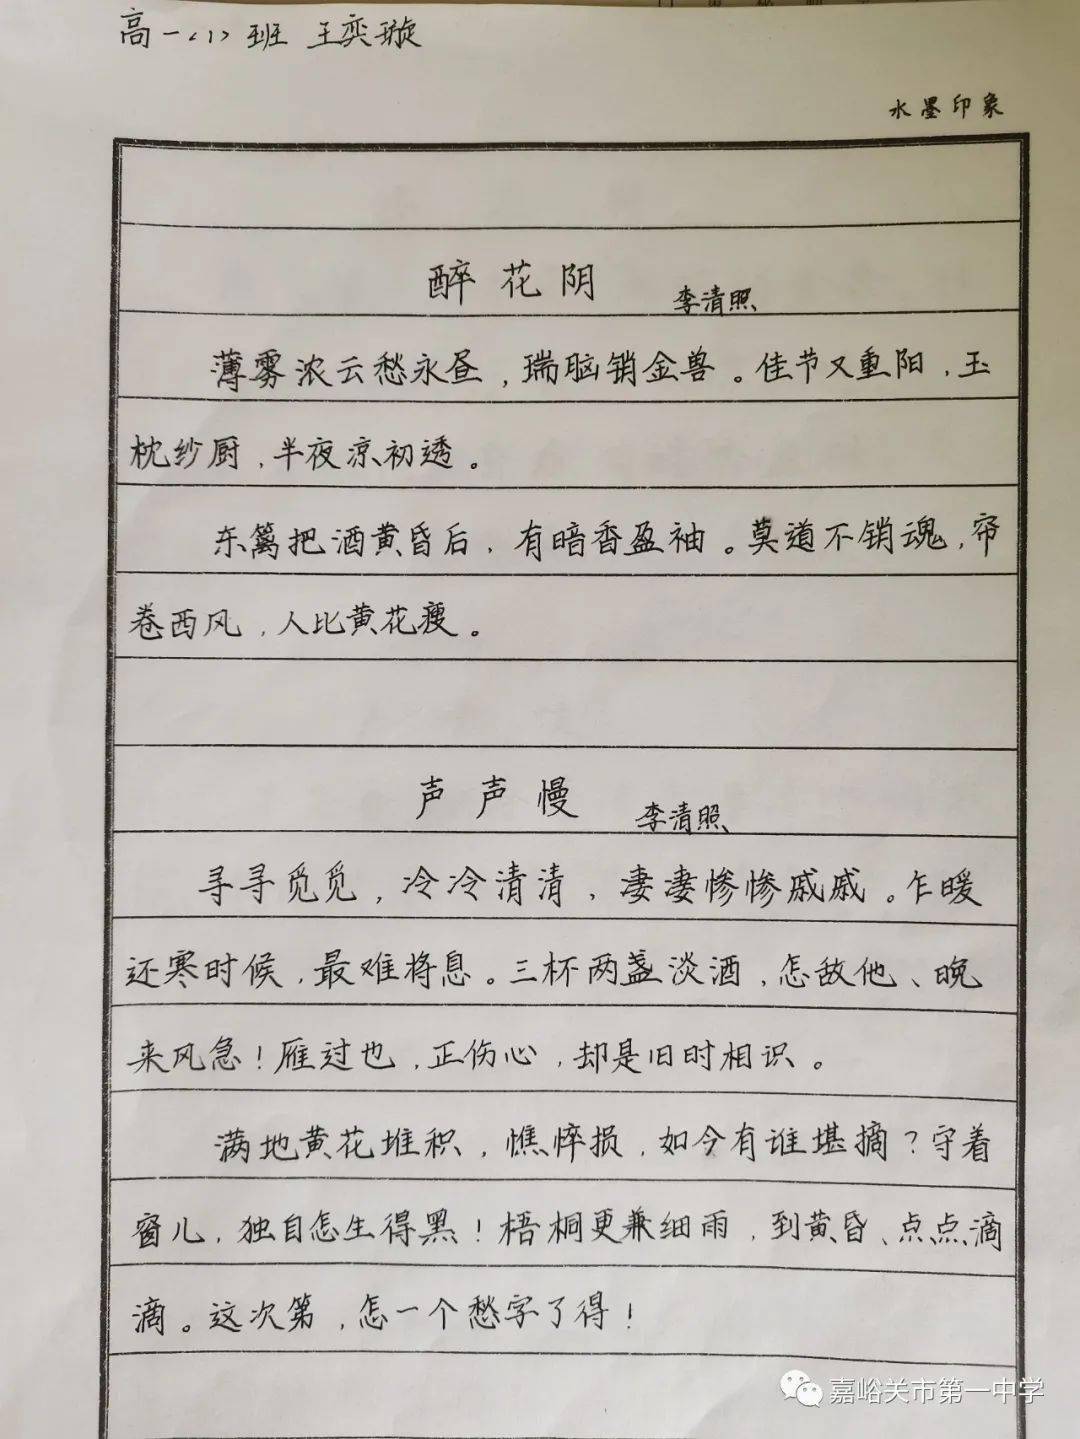 高一（1）班 王奕璇
水墨印象
醉花阴 李清照
薄雾浓云愁永昼，瑞脑销金兽。佳节又重阳，玉
枕纱厨，半夜凉初透。
东篱把酒黄昏后，有暗香盈袖。莫道不销魂，帘
卷西风，人比黄花瘦。
声声慢 李清照
寻寻觅觅，冷冷清清，凄凄惨惨戚戚。乍暖
还寒时候，最难将息。三杯两盏淡酒，怎敌他、晚
来风急！雁过也，正伤心，却是旧时相识。
满地黄花堆积，憔悴损，如今有谁堪摘？守着
窗儿，独自怎生得黑！梧桐更兼细雨，到黄昏、点点滴
滴。这次第，怎一个愁字了得！
嘉峪关市第一中学